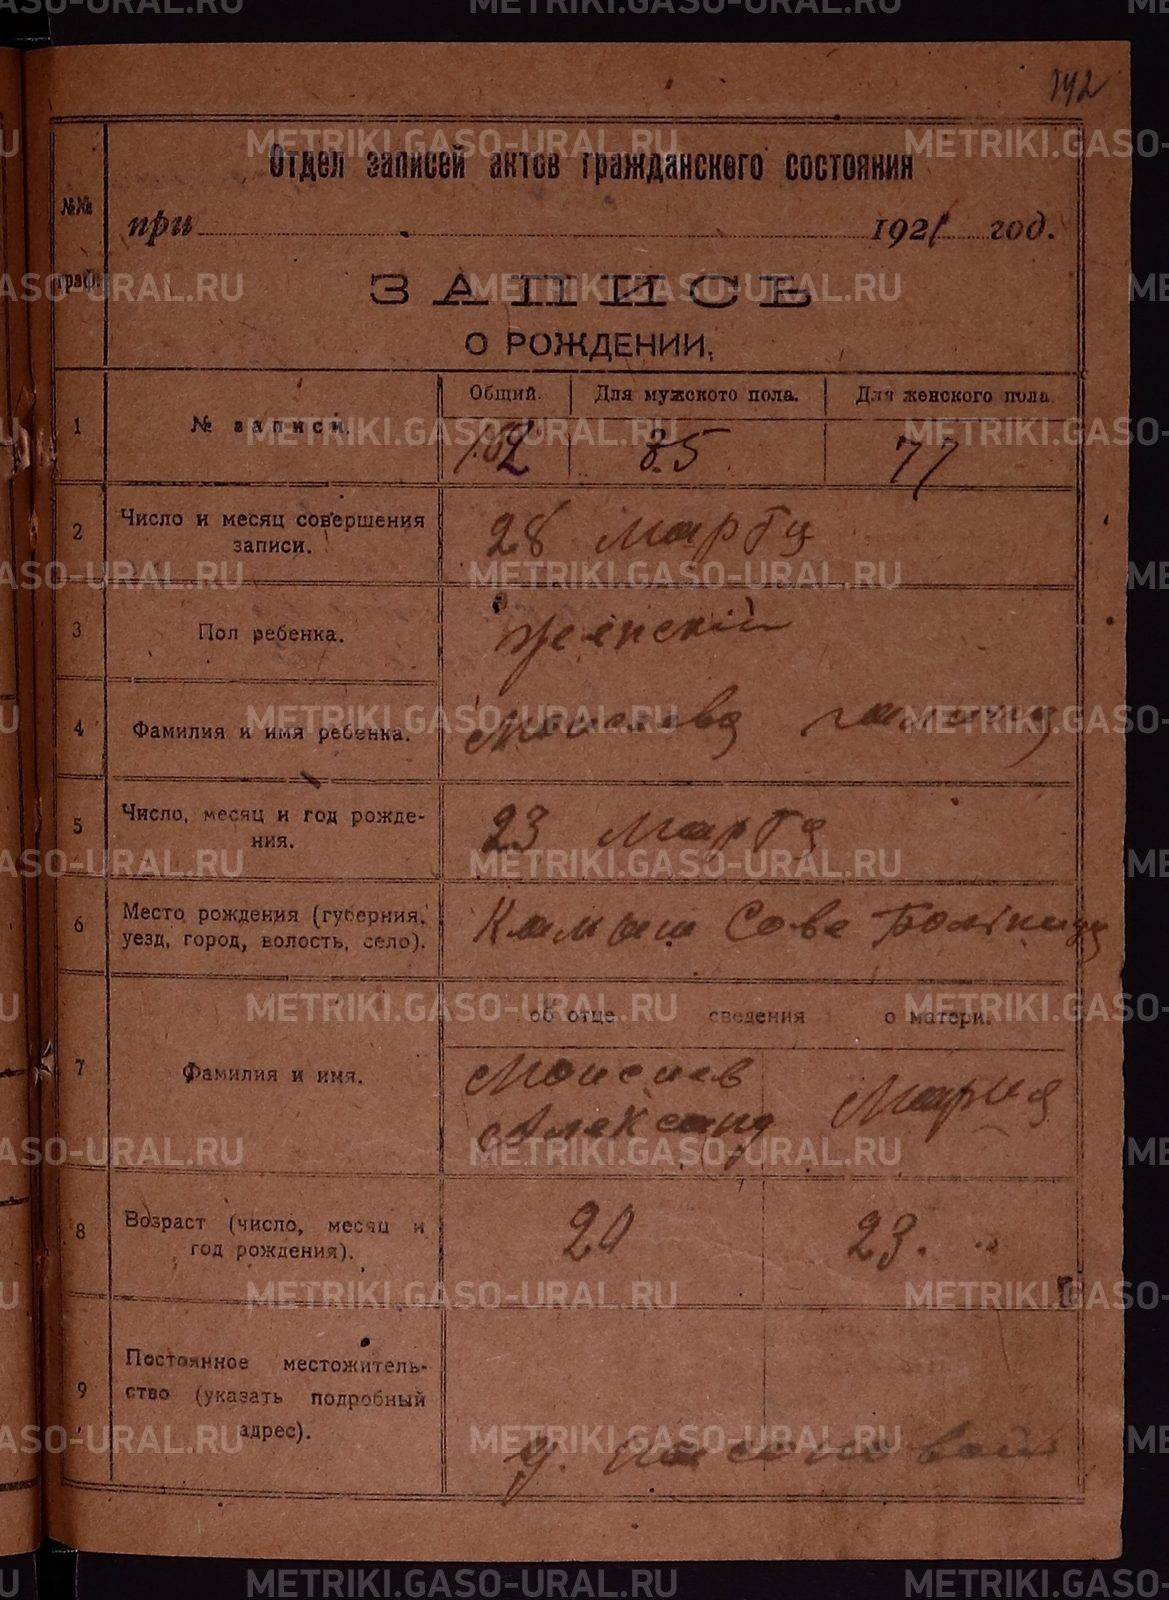 142
Отдел записей актов гражданского состояния
№№ граф.
при 1921 год.
ЗАПИСЬ
О РОЖДЕНИИ.
1 № записи. Общий. Для мужского пола. Для женского пола.
162 85 77
2 Число и месяц совершения записи. 28 Марта
3 Пол ребенка. женский
4 Фамилия и имя ребенка. Моисеева Галина
5 Число, месяц и год рождения. 23 Марта
6 Место рождения (губерния, уезд, город, волость, село). Камыш Сове Больница
об отце сведения о матери.
7 Фамилия и имя. Моисеев Александ Мария
8 Возраст (число, месяц и год рождения). 20 23.
9 Постоянное местожительство (указать подробный адрес).
METRIKI.GASO-URAL.RU